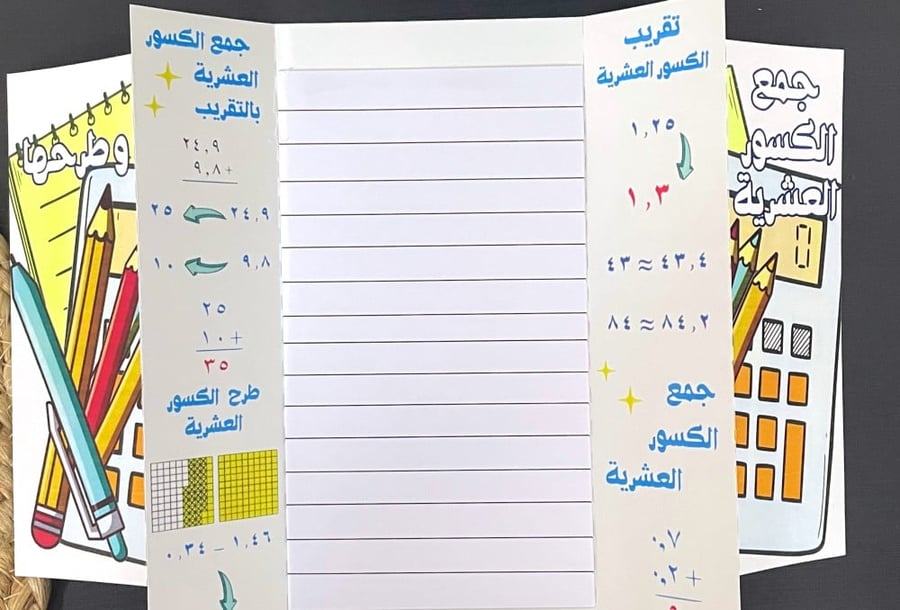 جمع
الكسور
العشرية
وطرحها
تقريب
الكسور العشرية
١,٢٥
١,٣
٤٣,٤ ≈ ٤٣
٨٤,٢ ≈ ٨٤
جمع
الكسور
العشرية
٠,٧
٠,٢ +
جمع الكسور
العشرية
بالتقريب
٢٤,٩
٩,٨ +
٢٤,٩ ٢٥
٩,٨ ١٠
٢٥
١٠ +
٣٥
طرح الكسور
العشرية
١,٤٦ – ٠,٣٤